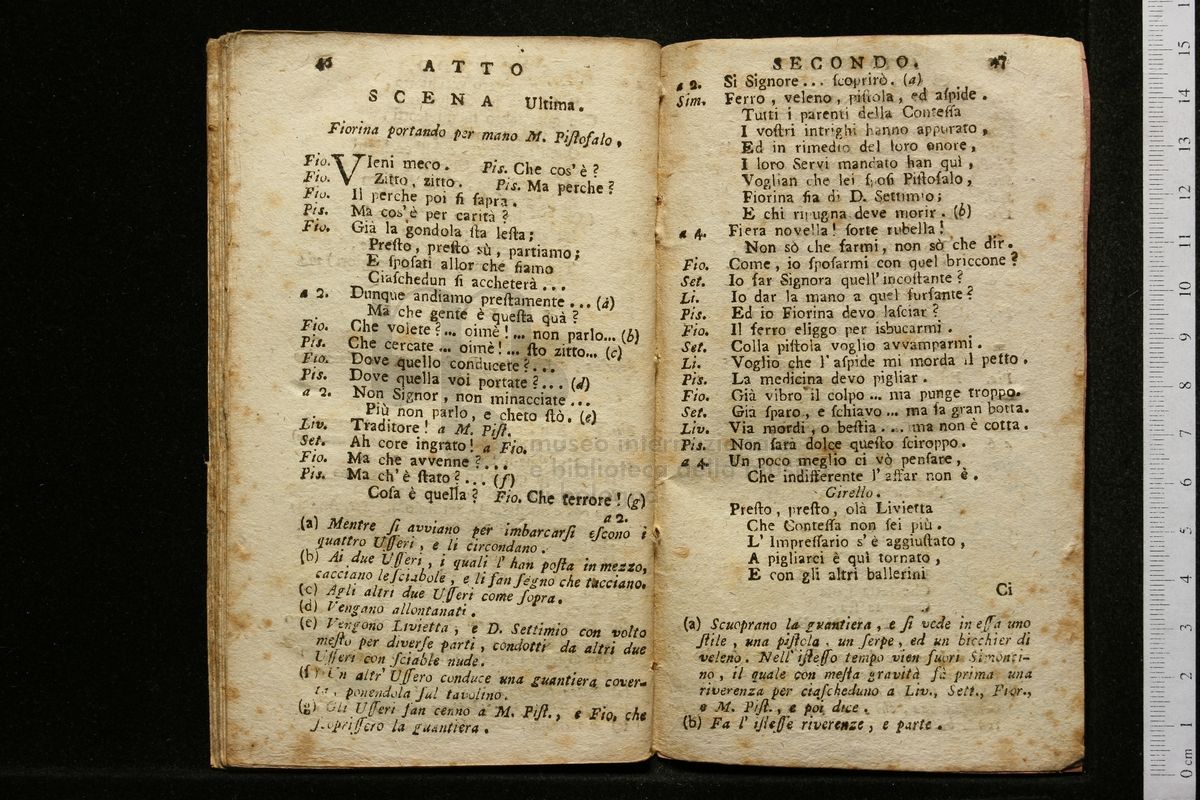 46
ATTO
SCENA Ultima.
Fiorina portando per mano M. Piſtofalo,
Fio. VIeni meco. Pis. Che cos'è?
Fio. Zitto, zitto. Pis. Ma perche?
Fio. Il perche poi ſi ſapra.
Pis. Ma cos'è per carità?
Fio. Già la gondola ſta leſta;
Preſto, preſto sù, partiamo;
E ſpoſati allor che ſiamo
Ciaſchedun ſi accheterà ...
a 2. Dunque andiamo preſtamente ... (a)
Ma che gente è queſta quà?
Fio. Che volete?... oimè!... non parlo... (b)
Pis. Che cercate ... oimè!... ſto zitto... (c)
Fio. Dove quello conducete?...
Pis. Dove quella voi portate?... (d)
a 2. Non Signor, non minacciate ...
Più non parlo, e cheto ſtò. (e)
Liv. Traditore! a M. Piſt.
Set. Ah core ingrato! a Fio.
Fio. Ma che avvenne?...
Pis. Ma ch'è ſtato?... (f)
Coſa è quella? Fio. Che terrore! (g)
a 2.
(a) Mentre ſi avviano per imbarcarſi eſcono i
quattro Uſſeri, e li circondano.
(b) Ai due Uſſeri, i quali l'han poſta in mezzo,
cacciano le ſciabole, e li fan ſegno che tacciano.
(c) Agli altri due Uſſeri come ſopra.
(d) Vengano allontanati.
(e) Vengono Livietta, e D. Settimio con volto
meſto per diverſe parti, condotti da altri due
Uſſeri con ſciable nude.
(f) Un altr'Uſſero conduce una guantiera cover-
ta, ponendola ſul tavolino.
(g) Gli Uſſeri fan cenno a M. Piſt., e Fio, che
ſcopriſſero la guantiera.
SECONDO.
47
a 2. Sì Signore... ſcoprirò. (a)
Sim. Ferro, veleno, piſtola, ed aſpide.
Tutti i parenti della Conteſſa
I voſtri intrighi hanno appurato,
Ed in rimedio del loro onore,
I loro Servi mandato han quì,
Voglian che lei ſpoſi Piſtofalo,
Fiorina ſia di D. Settimio;
E chi ripugna deve morir. (b)
a 4. Fiera novella! ſorte rubella!
Non sò che farmi, non sò che dir.
Fio. Come, io ſpoſarmi con quel briccone?
Set. Io far Signora quell'incoſtante?
Li. Io dar la mano a quel furfante?
Pis. Ed io Fiorina devo laſciar?
Fio. Il ferro eliggo per isbucarmi.
Set. Colla piſtola voglio avvamparmi.
Li. Voglio che l'aſpide mi morda il petto.
Pis. La medicina devo pigliar.
Fio. Già vibro il colpo ... ma punge troppo.
Set. Già ſparo, e ſchiavo ... ma fa gran botta.
Liv. Via mordi, o beſtia ... ma non è cotta.
Pis. Non ſarà dolce queſto ſciroppo.
a 4. Un poco meglio ci vò penſare,
Che indifferente l'affar non è.
Girello.
Preſto, preſto, olà Livietta
Che Conteſſa non ſei più.
L'Impreſſario s'è aggiuſtato,
A pigliarci è quì tornato,
E con gli altri ballerini
Ci
(a) Scuoprano la guantiera, e ſi vede in eſſa uno
ſtile, una piſtola, un ſerpe, ed un bicchier di
veleno. Nell'iſteſſo tempo vien fuori Simonci-
no, il quale con meſta gravità fà prima una
riverenza per ciaſcheduno a Liv., Sett., Fior.,
e M. Piſt., e poi dice.
(b) Fa l'iſteſſe riverenze, e parte.
museo internazionale
e biblioteca della
0 cm 1 2 3 4 5 6 7 8 9 10 11 12 13 14 15